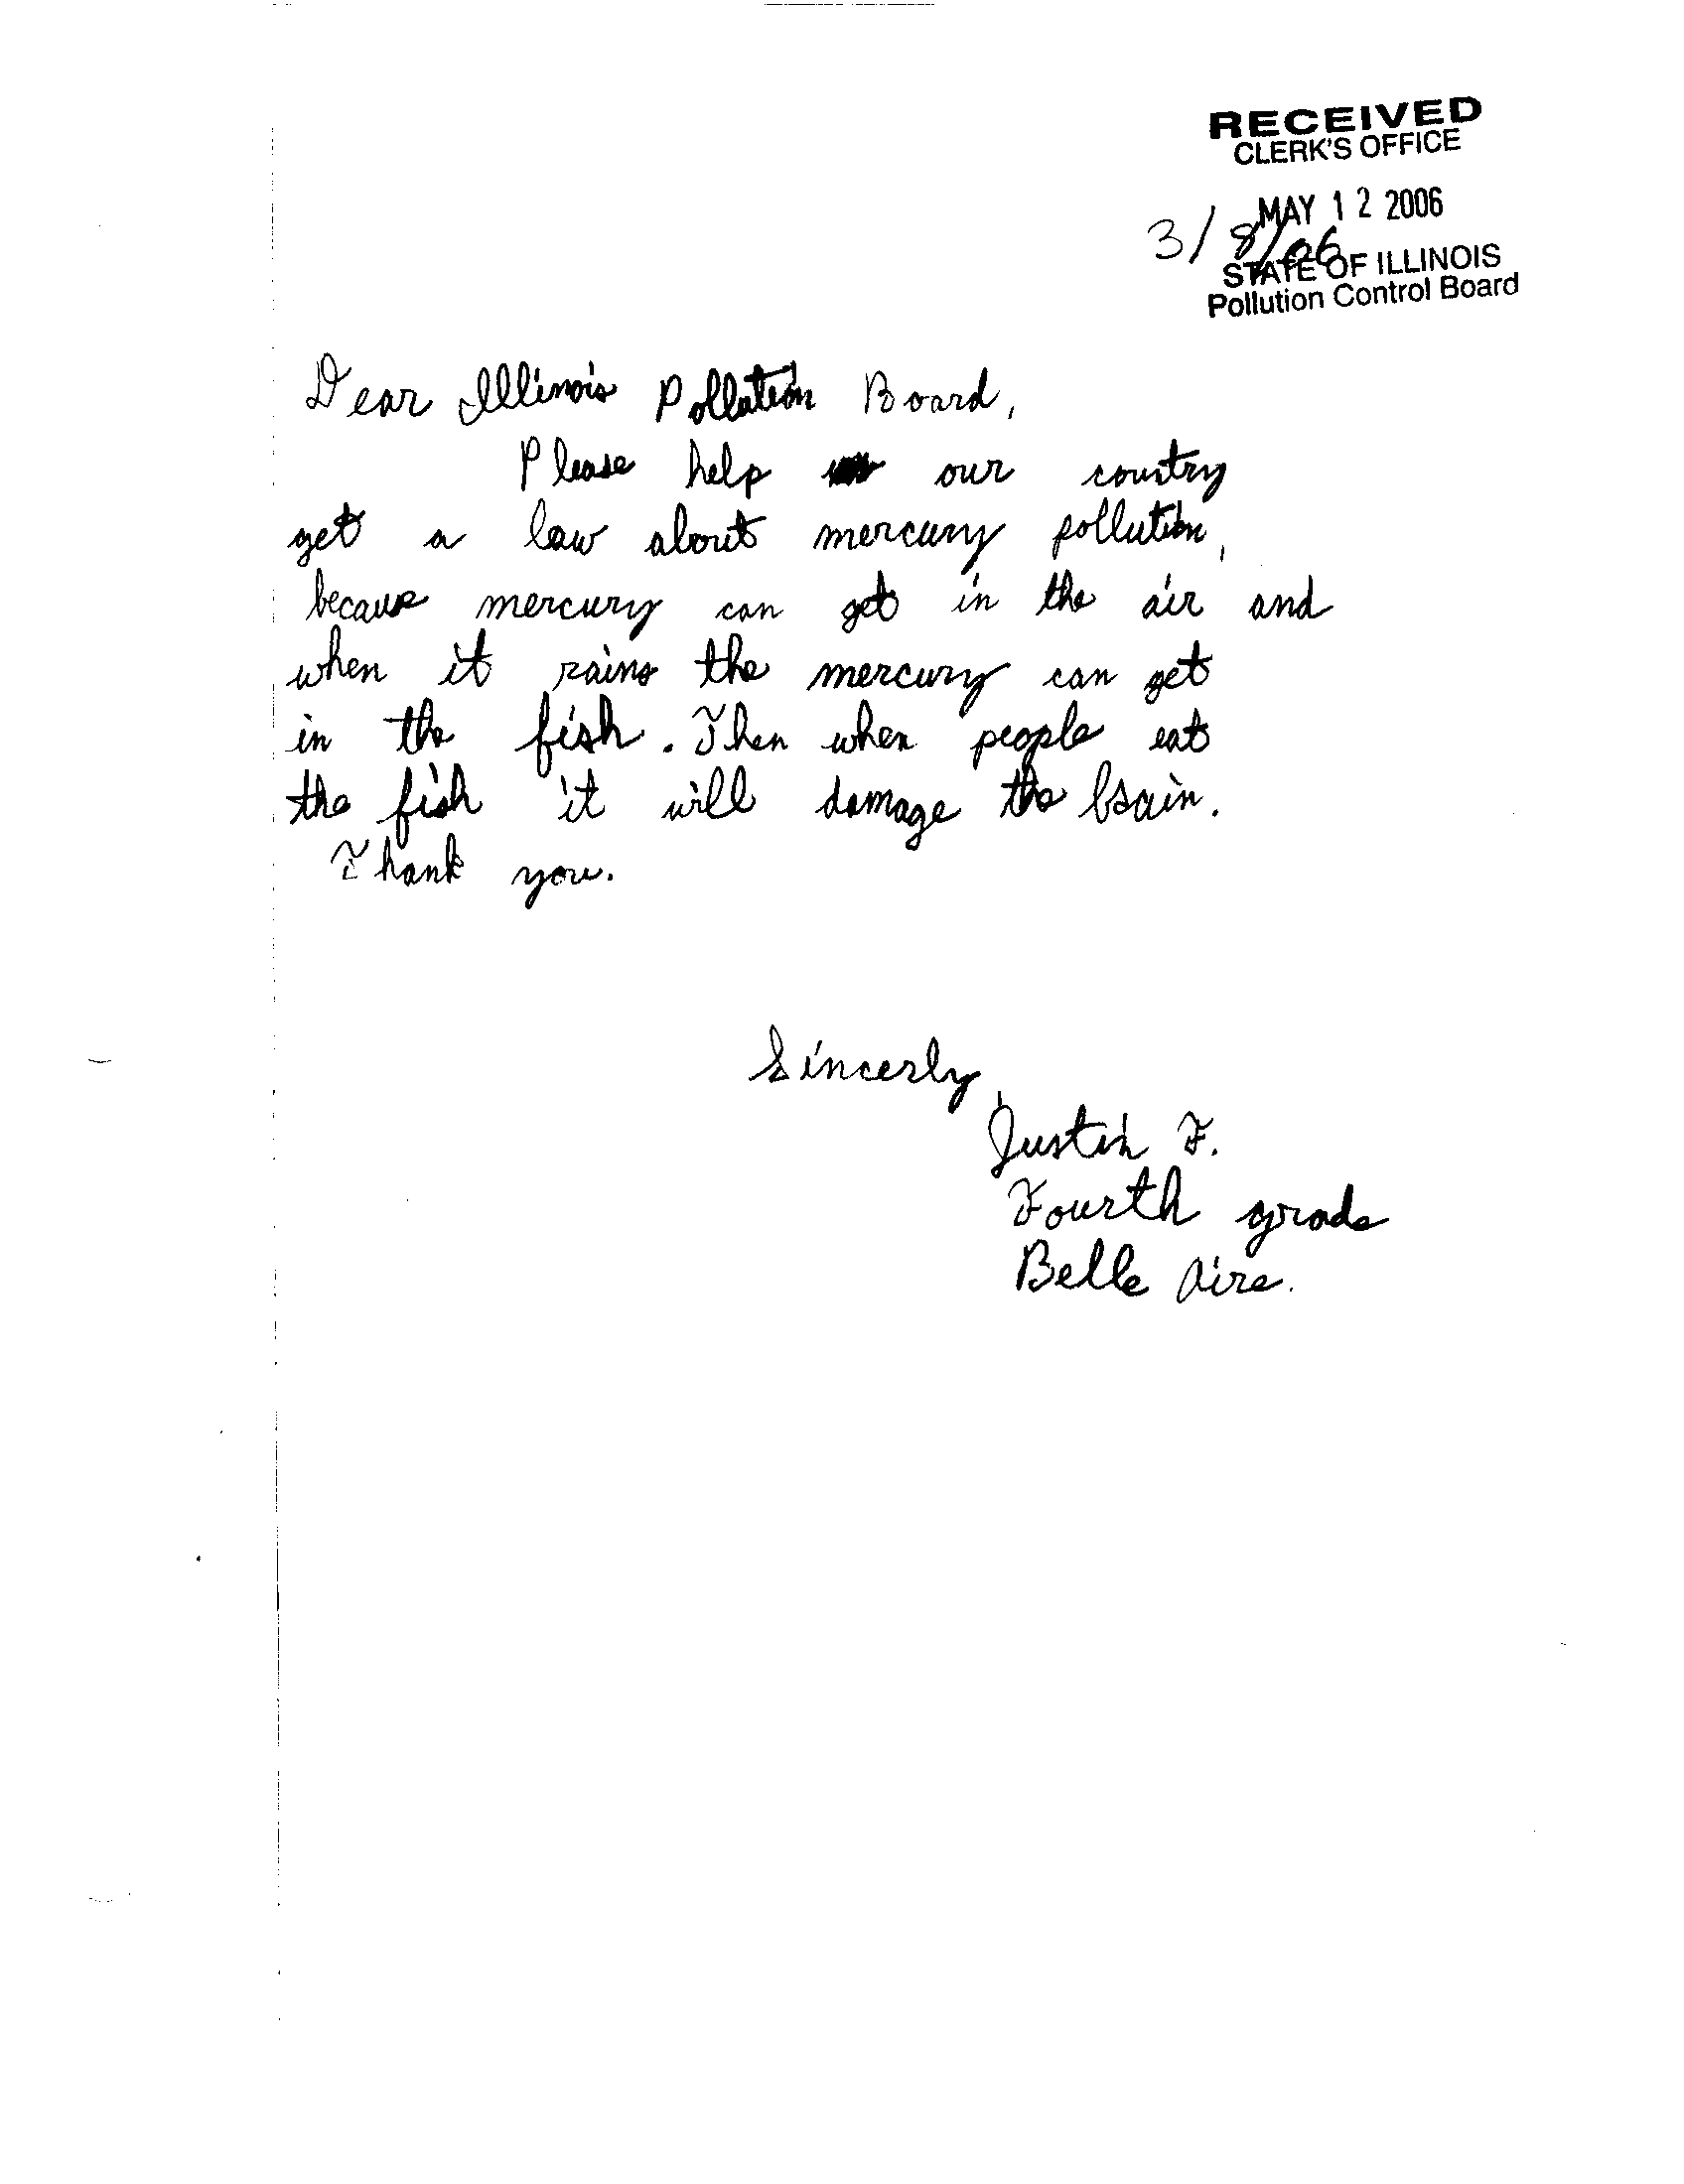 RECEIVED
CLERK'S OFFICE
MAY 12 2006
3/8/06
STATE OF ILLINOIS
Pollution Control Board
Dear Illinois Pollution Board,
Please help our country
get a law about mercury pollution,
because mercury can get in the air and
when it rains the mercury can get
in the fish. Then when people eat
the fish it will damage the brain.
Thank you.
Sincerly,
Justin F.
Fourth grade
Belle Aire.